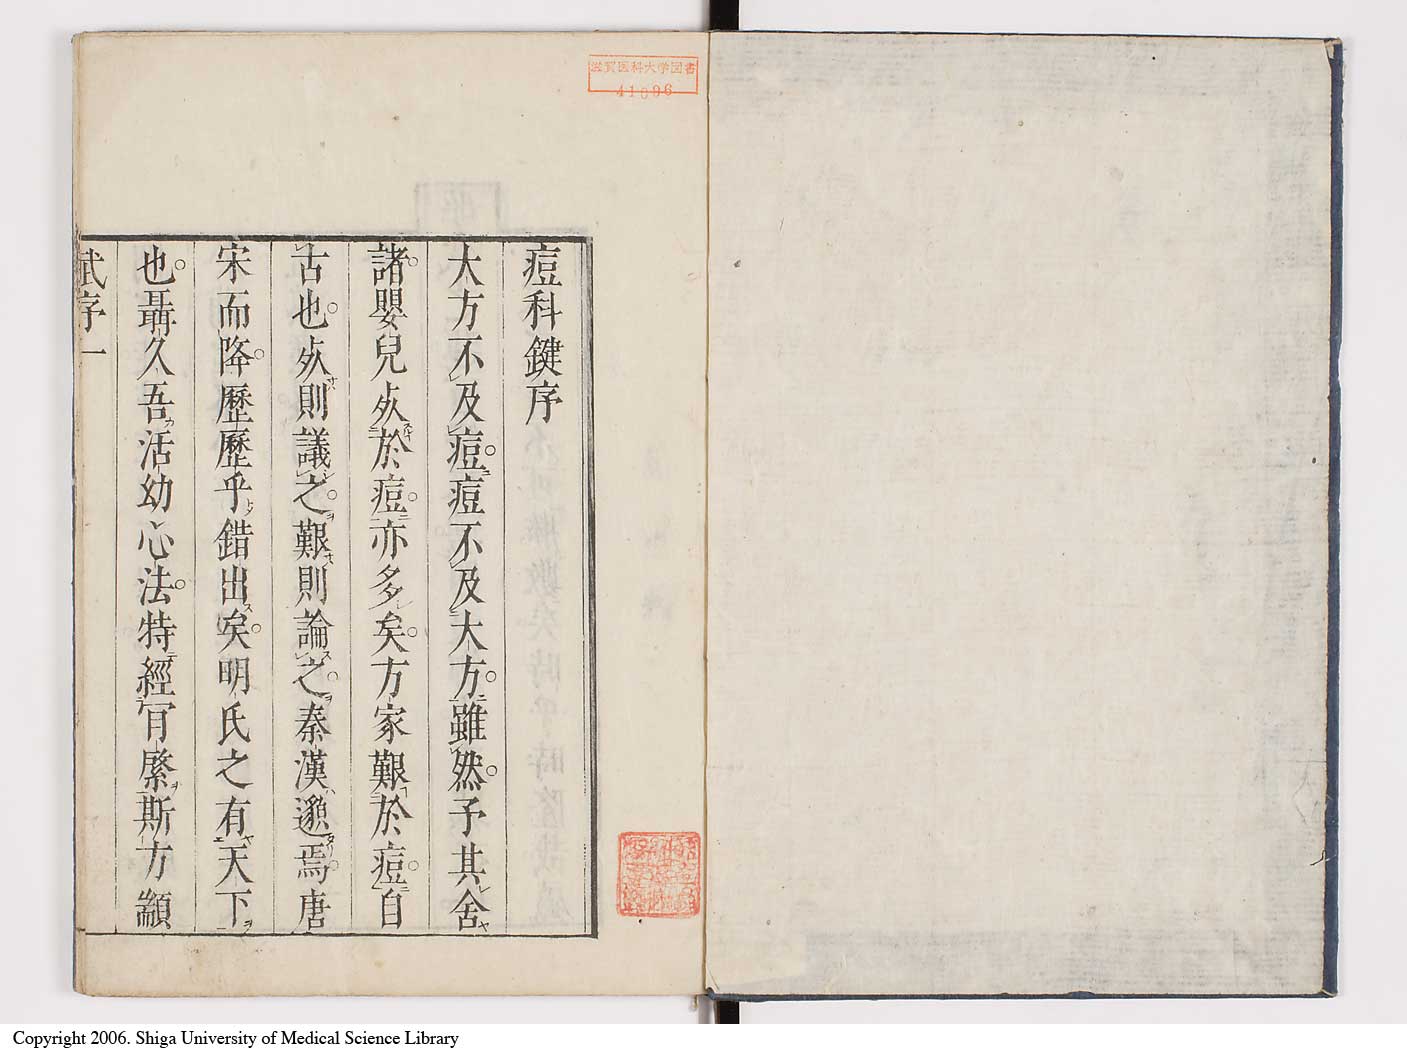 滋賀医科大学図書
41096
痘科鍵序
大方不及痘痘不及大方雖然予其舍
諸嬰兒𡰱於痘亦多矣方家艱於痘自
古也𡰱則議之艱則論之秦漢邈焉唐
宋而降歷歷乎錯出矣明氏之有天下
也聶久吾活幼心法特經官縻斯方顓
序一
Copyright 2006. Shiga University of Medical Science Library